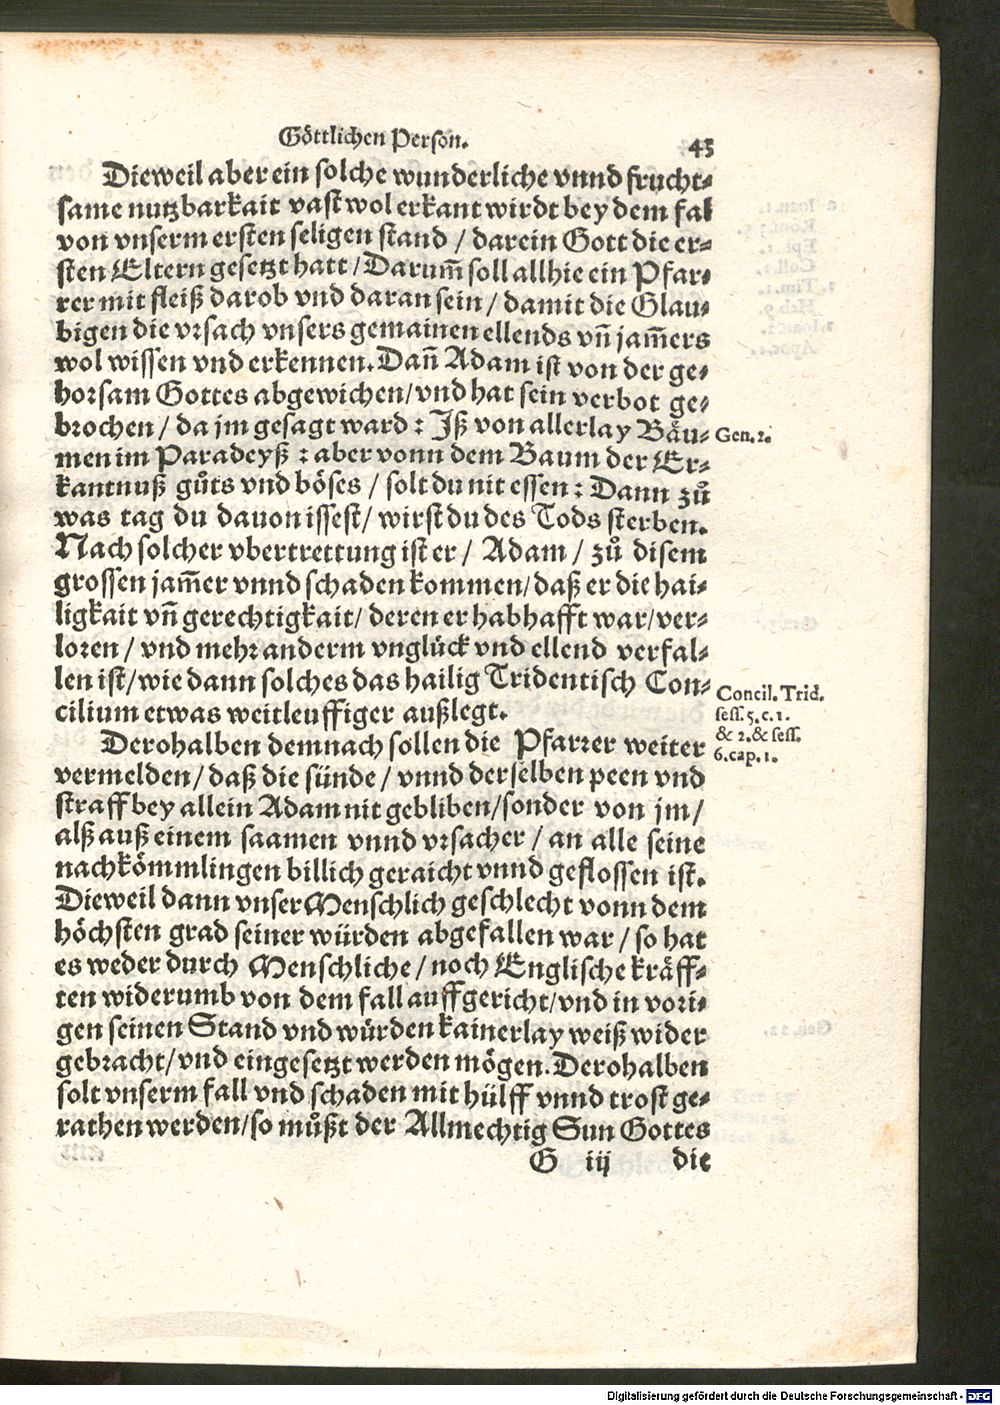 Göttlichen Person. 43
Dieweil aber ein solche wunderliche vnnd frucht⸗
same nutzbarkait vast wol erkant wirdt bey dem fal
von vnserm ersten seligen stand / darein Gott die er⸗
sten Eltern gesetzt hatt / Darum̃ soll allhie ein Pfar⸗
rer mit fleiß darob vnd daran sein / damit die Glau⸗
bigen die vrsach vnsers gemainen ellends vñ jam̃ers
wol wissen vnd erkennen. Dañ Adam ist von der ge⸗
horsam Gottes abgewichen / vnd hat sein verbot ge⸗
brochen / da jm gesagt ward : Iß von allerlay Bäu⸗ Gen. 2.
men im Paradeyß : aber vonn dem Baum der Er⸗
kantnuß gůts vnd böses / solt du nit essen : Dann zů
was tag du dauon issest / wirst du des Tods sterben.
Nach solcher vbertrettung ist er / Adam / zů disem
grossen jam̃er vnnd schaden kommen / daß er die hai⸗
ligkait vñ gerechtigkait / deren er habhafft war / ver⸗
loren / vnd mehr anderm vnglück vnd ellend verfal⸗
len ist / wie dann solches das hailig Tridentisch Con⸗
cilium etwas weitleuffiger außlegt.
Concil. Trid.
sess. 5. c. 1.
& 2. & sess.
6. cap. 1.
Derohalben demnach sollen die Pfarrer weiter
vermelden / daß die sünde / vnnd derselben peen vnd
straff bey allein Adam nit gebliben / sonder von jm /
alß auß einem saamen vnnd vrsacher / an alle seine
nachkömmlingen billich geraicht vnnd geflossen ist.
Dieweil dann vnser Menschlich geschlecht vonn dem
höchsten grad seiner würden abgefallen war / so hat
es weder durch Menschliche / noch Englische kräff⸗
ten widerumb von dem fall auffgericht / vnd in vori⸗
gen seinen Stand vnd würden kainerlay weiß wider
gebracht / vnd eingesetzt werden mögen. Derohalben
solt vnserm fall vnd schaden mit hülff vnnd trost ge⸗
rathen werden / so můßt der Allmechtig Sun Gottes
G iij die
Digitalisierung gefördert durch die Deutsche Forschungsgemeinschaft - DFG